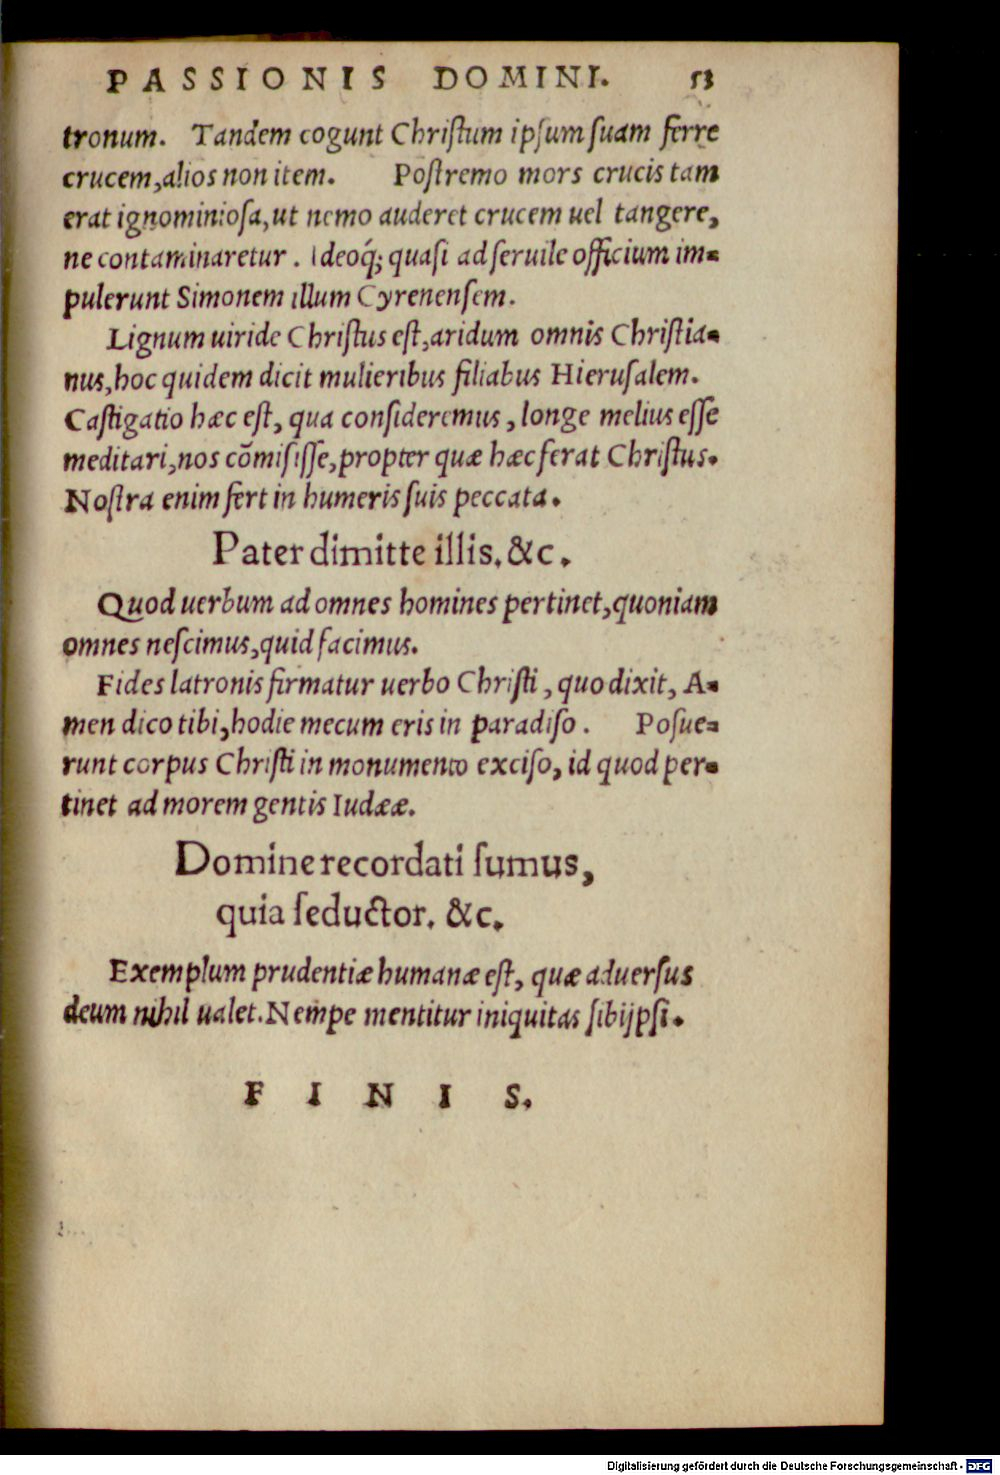 PASSIONIS DOMINI. 53
tronum. Tandem cogunt Christum ipsum suam ferre
crucem, alios non item. Postremo mors crucis tam
erat ignominiosa, ut nemo auderet crucem uel tangere,
ne contaminaretur. Ideoq́; quasi ad seruile officium im-
pulerunt Simonem illum Cyrenensem.
Lignum uiride Christus est, aridum omnis Christia-
nus, hoc quidem dicit mulieribus filiabus Hierusalem.
Castigatio hæc est, qua consideremus, longe melius esse
meditari, nos cõmisisse, propter quæ hæc ferat Christus.
Nostra enim fert in humeris suis peccata.
Pater dimitte illis. &c.
Quod uerbum ad omnes homines pertinet, quoniam
omnes nescimus, quid facimus.
Fides latronis firmatur uerbo Christi, quo dixit, A-
men dico tibi, hodie mecum eris in paradiso. Posue-
runt corpus Christi in monumento exciso, id quod per-
tinet ad morem gentis Iudææ.
Domine recordati sumus,
quia seductor. &c.
Exemplum prudentiæ humanæ est, quæ aduersus
deum nihil ualet. Nempe mentitur iniquitas sibijpsi.
FINIS.
Digitalisierung gefördert durch die Deutsche Forschungsgemeinschaft - DFG